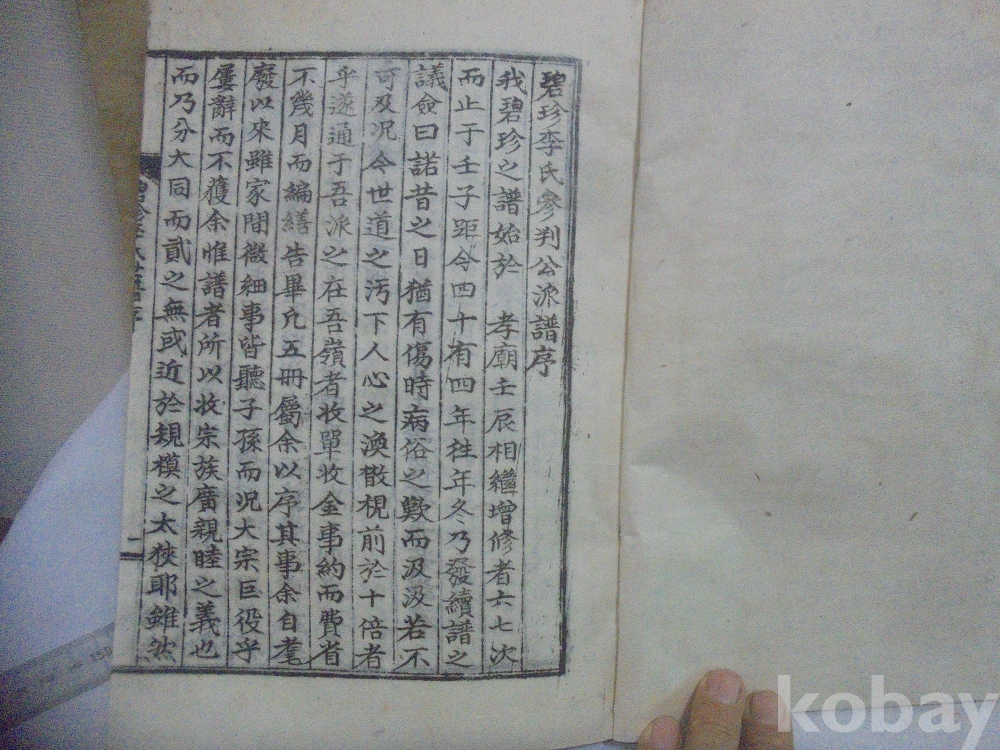 碧珍李氏參判公派譜序
我碧珍之譜始於 孝廟壬辰相繼增修者六七次
而止于壬子距今四十有四年往年冬乃發續譜之
議僉曰諾昔之日猶有傷時病俗之歎而汲汲若不
可及况今世道之汚下人心之渙散視前於十倍者
乎遂通于吾派之在吾嶺者收單收金事約而費省
不幾月而編繕告畢凢五冊屬余以序其事余自耄
廢以來雖家間微細事皆聽子孫而况大宗巨役乎
屢辭而不獲余惟譜者所以收宗族廣親睦之義也
而乃分大同而貳之無或近於規模之太狹耶雖然
碧珍李氏世譜序
一
kobay